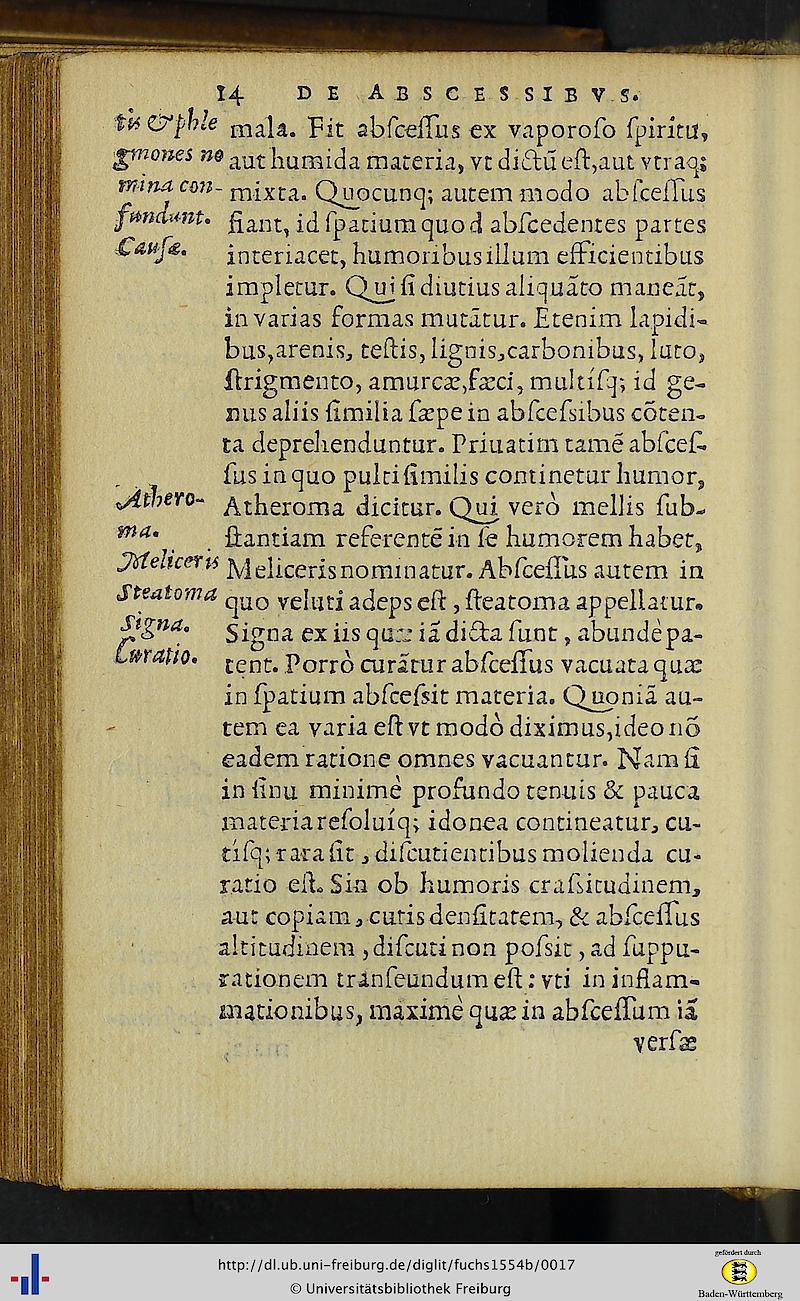 14 DE ABSCESSIBVS.
tũ & phle
gmones no
mina con-
fundunt.
Causæ.
mala. Fit abſceſſus ex vaporoſo ſpiritu,
aut humida materia, vt dictũ eſt, aut vtraq;
mixta. Quocunq; autem modo abſceſſus
fiant, id ſpatium quod abſcedentes partes
interiacet, humoribus illum efficientibus
impletur. Qui ſi diutius aliquãto maneãt,
in varias formas mutãtur. Etenim lapidi-
bus, arenis, teſtis, lignis, carbonibus, luto,
ſtrigmento, amurcæ, fæci, multíſq; id ge-
nus aliis ſimilia ſæpe in abſceſsibus cõten-
ta deprehenduntur. Priuatim tamẽ abſceſ-
ſus in quo pulti ſimilis continetur humor,
Athero-
ma.
Atheroma dicitur. Qui verò mellis ſub-
ſtantiam referentẽ in ſe humorem habet,
Meliceris
Meliceris nominatur. Abſceſſus autem in
Steatoma
quo veluti adeps eſt, ſteatoma appellatur.
Signa.
Signa ex iis quæ iã dicta ſunt, abundè pa-
Curatio.
tent. Porrò curãtur abſceſſus vacuata quæ
in ſpatium abſceſsit materia. Quoniã au-
tem ea varia eſt vt modò diximus, ideo nõ
eadem ratione omnes vacuantur. Nam ſi
in ſinu minimè profundo tenuis & pauca
materia reſoluíq; idonea contineatur, cu-
tíſq; rara ſit, diſcutientibus molienda cu-
ratio eſt. Sin ob humoris craſsitudinem,
aut copiam, cutis denſitatem, & abſceſſus
altitudinem, diſcuti non poſsit, ad ſuppu-
rationem tranſeundum eſt: vti in inflam-
mationibus, maximè quæ in abſceſſum iã
verſæ
http://dl.ub.uni-freiburg.de/diglit/fuchs1554b/0017
© Universitätsbibliothek Freiburg
gefördert durch
Baden-Württemberg